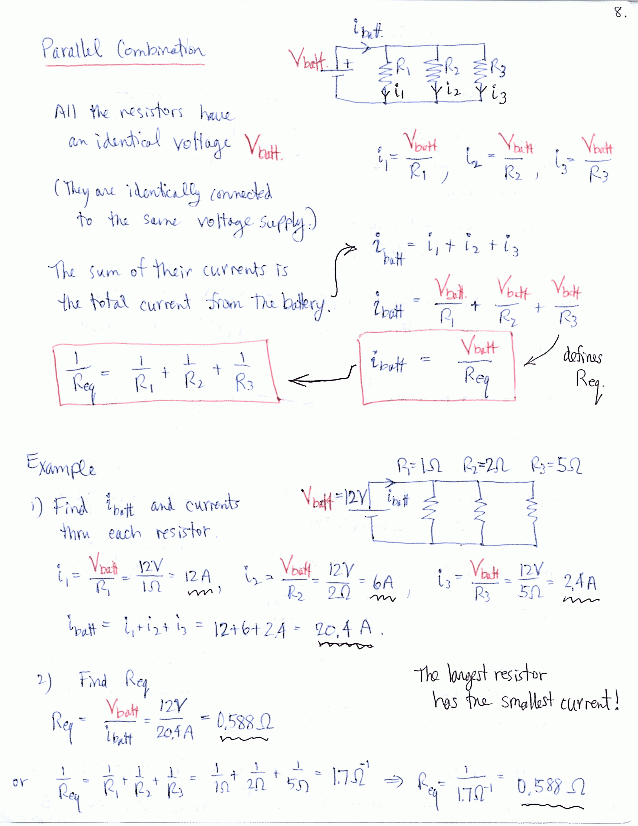 8.
Parallel Combination
i_batt
V_batt + R1 R2 R3
i1 i2 i3
All the resistors have
an identical voltage V_batt.
i1 = V_batt/R1 , i2 = V_batt/R2 , i3 = V_batt/R3
(They are identically connected
to the same voltage supply.)
i_batt = i1 + i2 + i3
The sum of their currents is
the total current from the battery.
i_batt = V_batt/R1 + V_batt/R2 + V_batt/R3
1/Req = 1/R1 + 1/R2 + 1/R3
i_batt = V_batt/Req
defines
Req.
Example
R1=1Ω R2=2Ω R3=5Ω
V_batt=12V i_batt
1) Find i_batt and currents
thru each resistor.
i1 = V_batt/R1 = 12V/1Ω = 12A , i2 = V_batt/R2 = 12V/2Ω = 6A , i3 = V_batt/R3 = 12V/5Ω = 2.4A
i_batt = i1 + i2 + i3 = 12+6+2.4 = 20.4 A.
2) Find Req
The largest resistor
has the smallest current!
Req = V_batt/i_batt = 12V/20.4A = 0.588Ω
or 1/Req = 1/R1 + 1/R2 + 1/R3 = 1/1Ω + 1/2Ω + 1/5Ω = 1.7Ω⁻¹ ⇒ Req = 1/1.7Ω⁻¹ = 0.588Ω